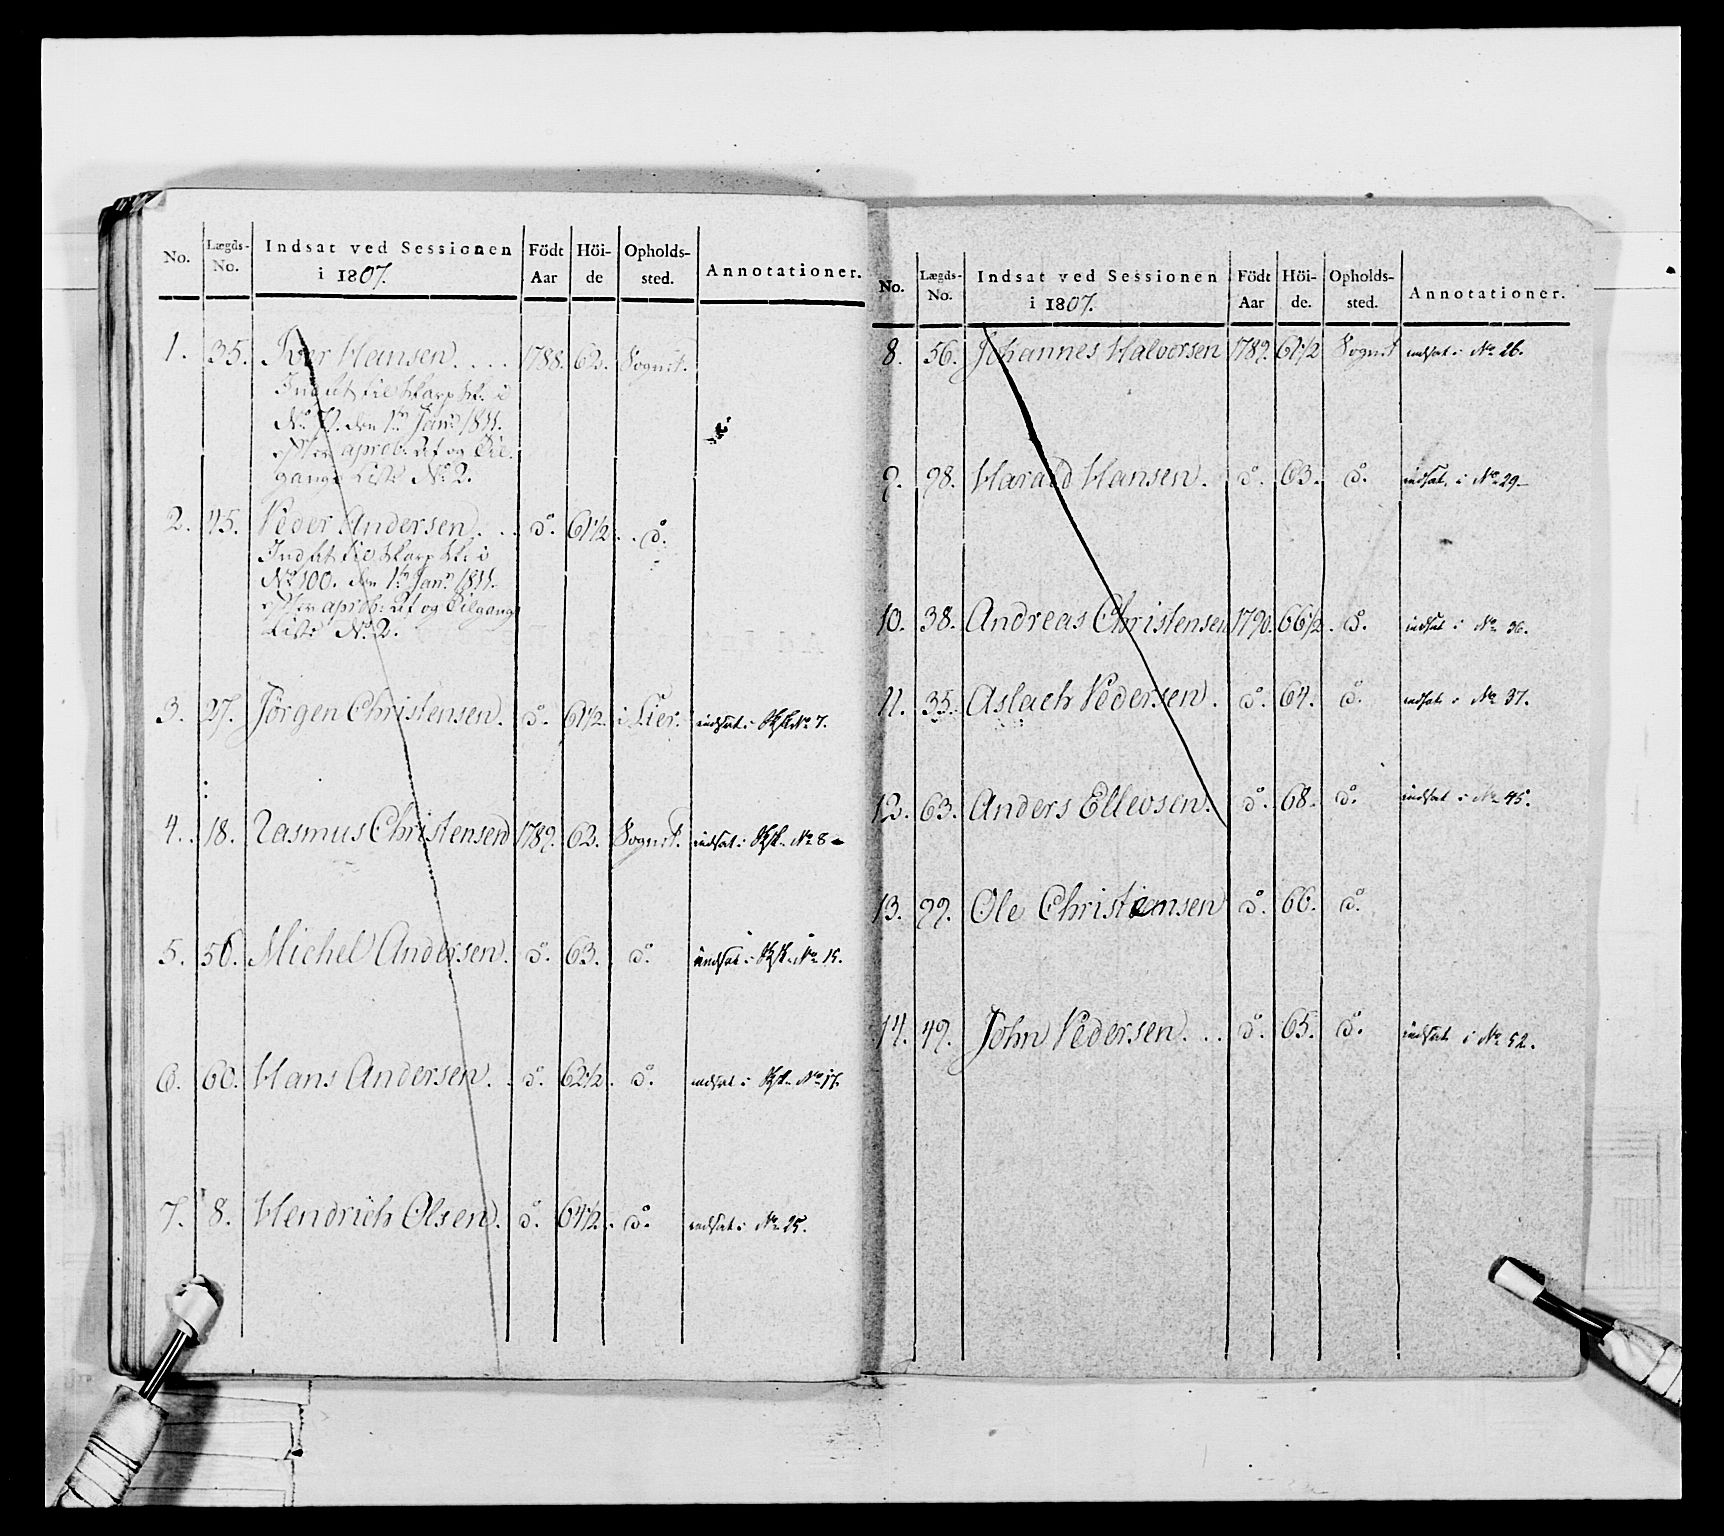 No. Lægds-No. Indsat ved Sessionen i 1807. Födt Aar Höi-de Opholds-sted. Annotationer.
1. 35. Iver Hansen. . . . 1788. 62. Sognet.
Indsat til Skarp Sk. i
No 79. den 1te Janr 1811.
efter aprob: Af og Til-
gangs Liste No 2.
2. 45. Peder Andersen. . . do. 61 1/2. . do.
Indsat til Skarp Sk. i
No 100. den 1te Janr 1811.
efter aprob: Af og Tilgangs
Liste No 2.
3. 27. Jörgen Christensen. do. 61 1/2. i Lier. indsat i No 7.
4. 18. Rasmus Christensen 1789. 62. Sognet. indsat i No 8
5. 50. Michel Andersen. do. 63. do. indsat i No 15.
6. 60. Hans Andersen. . do. 62 1/2. do. indsat i No 17.
7. 8. Hendrich Olsen. do. 64 1/2. do. indsat i No 25.
No. Lægds-No. Indsat ved Sessionen i 1807. Födt Aar Höi-de. Opholds-sted. Annotationer.
8. 56. Johannes Halvorsen 1789. 61 1/2 Sognet indsat i No 26.
9. 98. Harald Hansen. do. 63. do. indsat i No 29
10. 38. Andreas Christensen 1790. 66 1/2. do. indsat i No 36.
11. 35. Aslach Pedersen. do. 64. do. indsat i No 37.
12. 63. Anders Ellevsen. do. 68. do. indsat i No 45.
13. 99. Ole Christiansen do. 66. do.
14. 49. John Pedersen. . . do. 65. do. indsat i No 52.